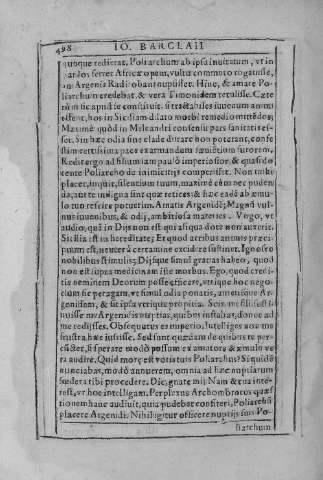 498 IO. BARCLAII
quoque redierat, Poliarchum ab ipsa inuitatum, vt in
ardos ferret Africæ opem, vultu commuto rogauisse,
Argenis Radirobani nupsisset. Hinc, & amare Po-
liarchum credebat, & vera Timonidem retulisse. Cæte
rùm sic apud se constituit. si tractabiles iuuenum animi
essent, hos in Siciliam dilato morbi remedio mittēdos;
Maximè quòd in Meleandri consensu pars sanitatis es-
set. Sin hæc odia sine clade durare non poterant, conse
stim certissima pace examandum sæuitium furorem,
Redit ergo ad filium iam paulò imperiosior, & quasi do
cente Poliarcho de inimicitijs comperisset. Non mihi
placet, inquit, silentium tuum, maximè cùm nec puden
da, aut te indigna sint quæ retices; & hæc eadē ab æmu-
lo tuo rescire potuerim. Amatis Argenidē; Magnū vul-
nus iuuenibus, & odij, ambitiosa materies. Virgo, vt
audio, quā in Dijs non est qui aliqua dote non auxerit.
Sicilia est in hereditate; Et quod acribus animis præci-
puum est, neuter à certamine excidere sustinet. Ignosco
nobilibus stimulis; Dijsque simul gratias habeo, quòd
non est supra medicinam iste morbus. Ego, quod credi-
tis neminem Deorum posse efficere, vtrique hoc nego-
cium sic peragam, vt simul odia ponatis, ametisque Ar-
genidem, & sit ipsa vtrique propitia. Scis me filij sic te
nuisse
me redijsses. Obsequutus es imperio. Intelliges non me
frustra hæc iussisse. Sed sunt quædam de quibus te per-
cūcter, si sperare modò possum ex amatore & æmulo ve
ra audire. Quid moris est votis tuis Poliarchus? Siquidē
nunciabas, modò annuerem, omnia ad hæc nuptiarum
fœdera tibi procedere. Dic, gnate mi; Nam & tua inte-
rest, vt hoc intelligam. Perplexus Archombrotus quæs
tionem hanc audiuit, quia pudebat confiteri, Poliarchū
placere Argenidi. Nihil igitur officere nuptijs suis Po-
liarchum